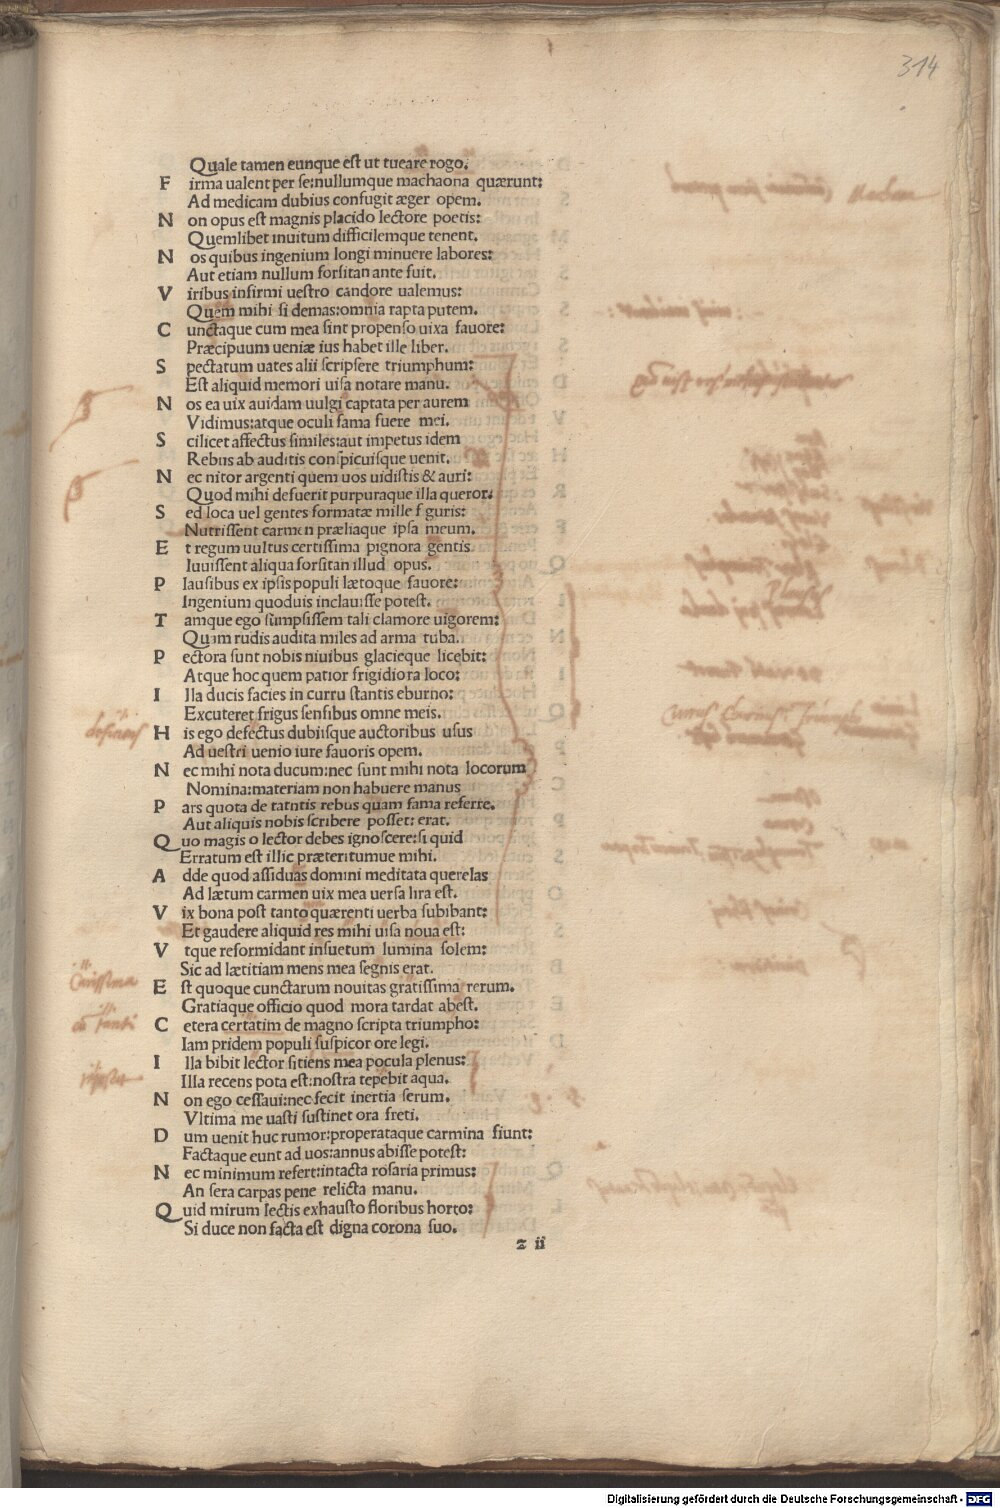 314
Quale tamen cunque est ut tueare rogo.
F irma ualent per se:nullumque machaona quærunt:
Ad medicam dubius confugit æger opem.
N on opus est magnis placido lectore poetis:
Quemlibet inuitum difficilemque tenent.
N os quibus ingenium longi minuere labores:
Aut etiam nullum forsitan ante fuit.
V iribus infirmi uestro candore ualemus:
Quem mihi si demas:omnia rapta putem.
C unctaque cum mea sint propenso nixa fauore:
Præcipuum ueniæ ius habet ille liber.
S pectatum uates alii scripsere triumphum:
Est aliquid memori uisa notare manu.
N os ea uix auidam uulgi captata per aurem
Vidimus:atque oculi fama fuere mei.
S cilicet affectus similes:aut impetus idem
Rebus ab auditis conspicuisque uenit.
N ec nitor argenti quem uos uidistis & auri:
Quod mihi defuerit purpuraque illa queror.
S ed loca uel gentes formatæ mille f guris:
Nutrissent carmen præliaque ipsa meum.
E t regum uultus certissima pignora gentis
Iuuissent aliqua forsitan illud opus.
P lausibus ex ipsis populi lætoque fauore:
Ingenium quoduis inclauisse potest.
T amque ego sumpsissem tali clamore uigorem:
Quam rudis audita miles ad arma tuba.
P ectora sunt nobis niuibus glacieque licebit:
Atque hoc quem patior frigidiora loco:
I lla ducis facies in curru stantis eburno:
Excuteret frigus sensibus omne meis.
H is ego defectus dubiisque auctoribus usus
Ad uestri uenio iure fauoris opem.
N ec mihi nota ducum:nec sunt mihi nota locorum
Nomina:materiam non habuere manus
P ars quota de tatntis rebus quam fama referre.
Aut aliquis nobis scribere posset: erat.
Q uo magis o lector debes ignoscere:si quid
Erratum est illic præteritumue mihi.
A dde quod assiduas domini meditata querelas
Ad lætum carmen uix mea uersa lira est.
V ix bona post tanto quærenti uerba subibant:
Et gaudere aliquid res mihi uisa noua est:
V tque reformidant insuetum lumina solem:
Sic ad lætitiam mens mea segnis erat.
E st quoque cunctarum nouitas gratissima rerum.
Gratiaque officio quod mora tardat abest.
C etera certatim de magno scripta triumpho:
Iam pridem populi suspicor ore legi.
I lla bibit lector sitiens mea pocula plenus:
Illa recens pota est:nostra tepebit aqua.
N on ego cessaui:nec fecit inertia serum.
Vltima me uasti sustinet ora freti.
D um uenit huc rumor:properataque carmina fiunt:
Factaque eunt ad uos:annus abisse potest:
N ec minimum refert:intacta rosaria primus:
An sera carpas pene relicta manu.
Q uid mirum lectis exhausto floribus horto:
Si duce non facta est digna corona suo.
z ii
Digitalisierung gefördert durch die Deutsche Forschungsgemeinschaft - DFG